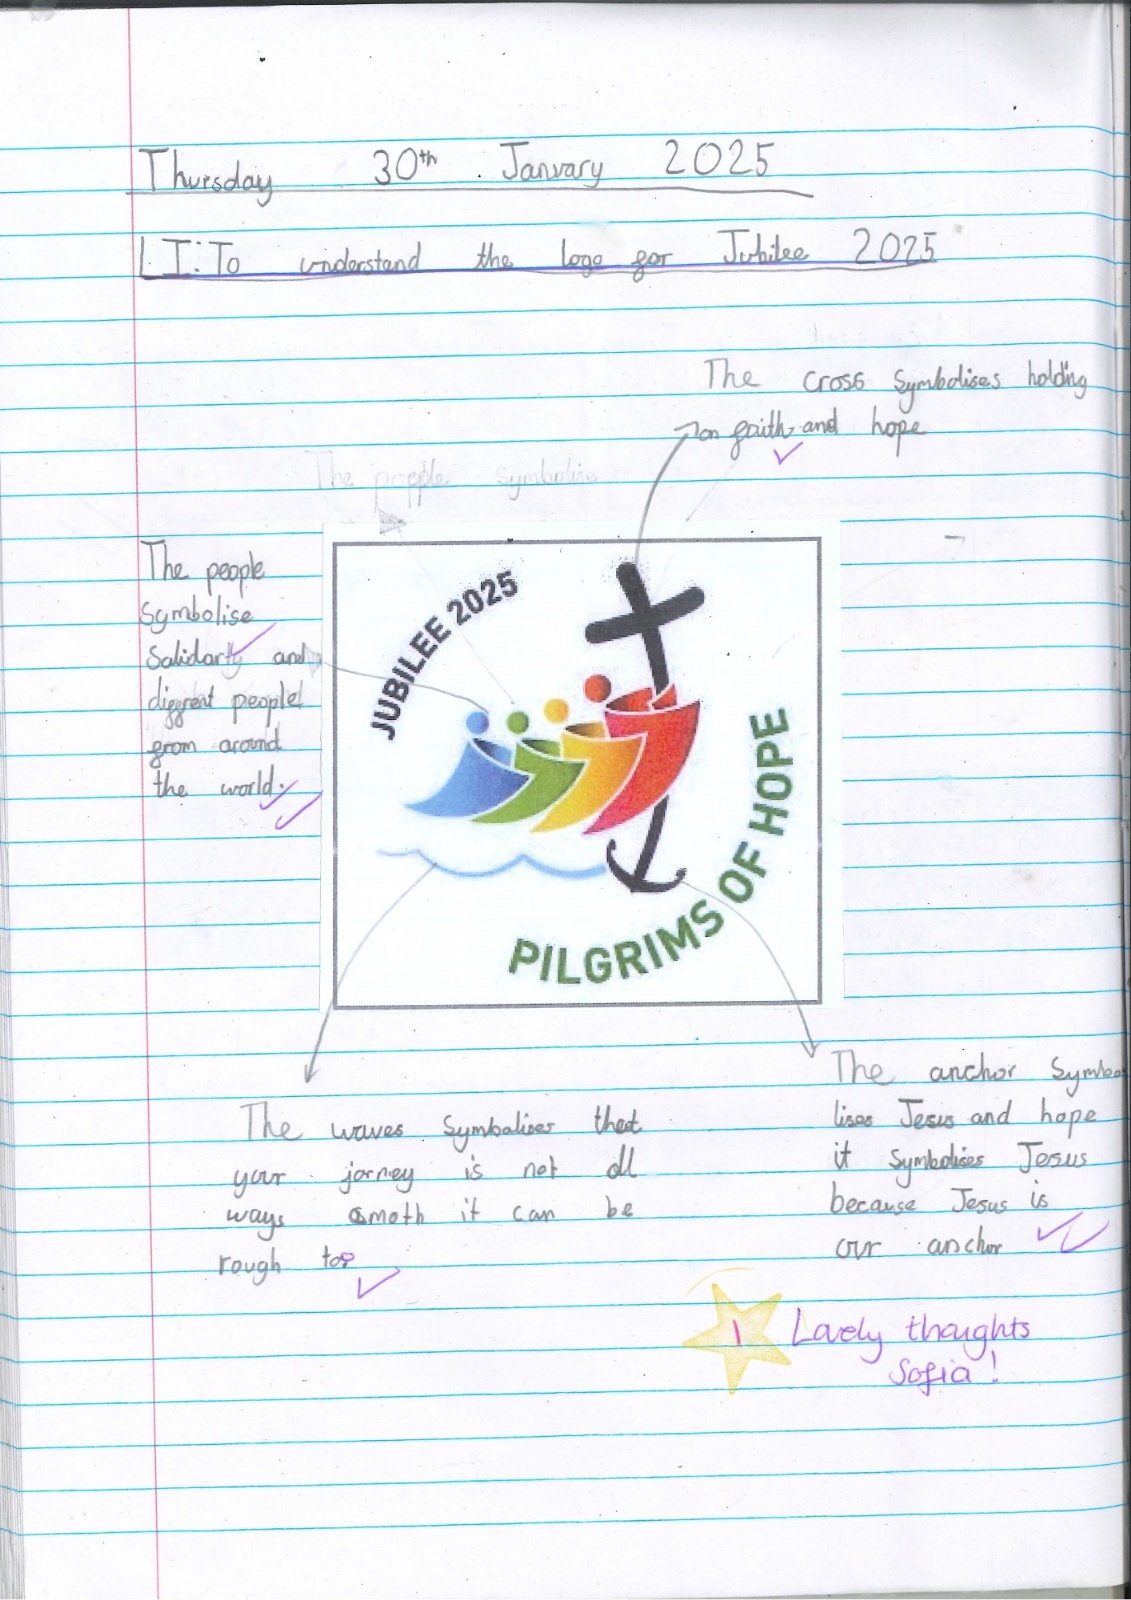 Thursday 30th January 2025
LI: To understand the logo for Jubilee 2025
The cross symbolises holding
on faith and hope
The people symbolise
The people
symbolise
Salidarty and
diffrent people
from around
the world.
JUBILEE 2025
PILGRIMS OF HOPE
The waves symbalises that
your jorney is not all
ways smoth it can be
rough too
The anchor symbo
lises Jesus and hope
it symbolises Jesus
because Jesus is
our anchor
1 Lovely thoughts
Sofia!